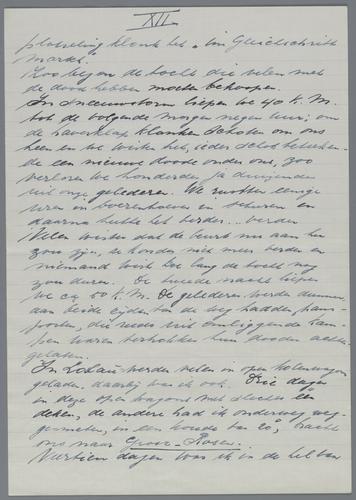 XII
plotseling klonk het "Im Gleichschritt
Marsch".
Zoo begon de tocht die velen met
de dood hebben moeten bekoopen.
In sneeuwstorm liepen we 40 K.M.
tot de volgende morgen negen uur; om
de haverklap klonken schoten om ons
heen en we wisten het, ieder schot beteeken-
de een nieuwe doode onder ons, zoo
verloren we honderden ja duizenden
uit onze gelederen. We rustten eenige
uren in boerenhoeven in schuren en
daarna hette het verder... verder
Velen wisten dat de beurt nu aan hen
zou zijn, ze konden niet meer verder en
niemand wist hoe lang de tocht nog
zou duren. De tweede nacht liepen
we ca 50 K.M. De gelederen werden dunner,
aan beide zijden van de weg hadden
die reeds uit omliggende kam-
pen waren vertrokken hun dooden achter
gelaten.
In Loslau werden velen in open kolenwagons
geladen, daarbij was ik ook. Drie dagen
in deze open wagons met slechts een
deken, de andere had ik onderweg weg-
gesmeten, in een koude van 20°, bracht
ons naar Gross-Rosen.
Veertien dagen was ik in de hel van